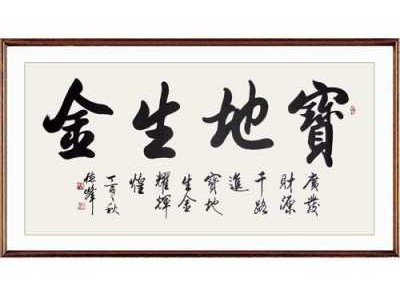 寶地生金
廣發
財源
千路
進
寶地
生金
耀輝
煌
丁酉之秋